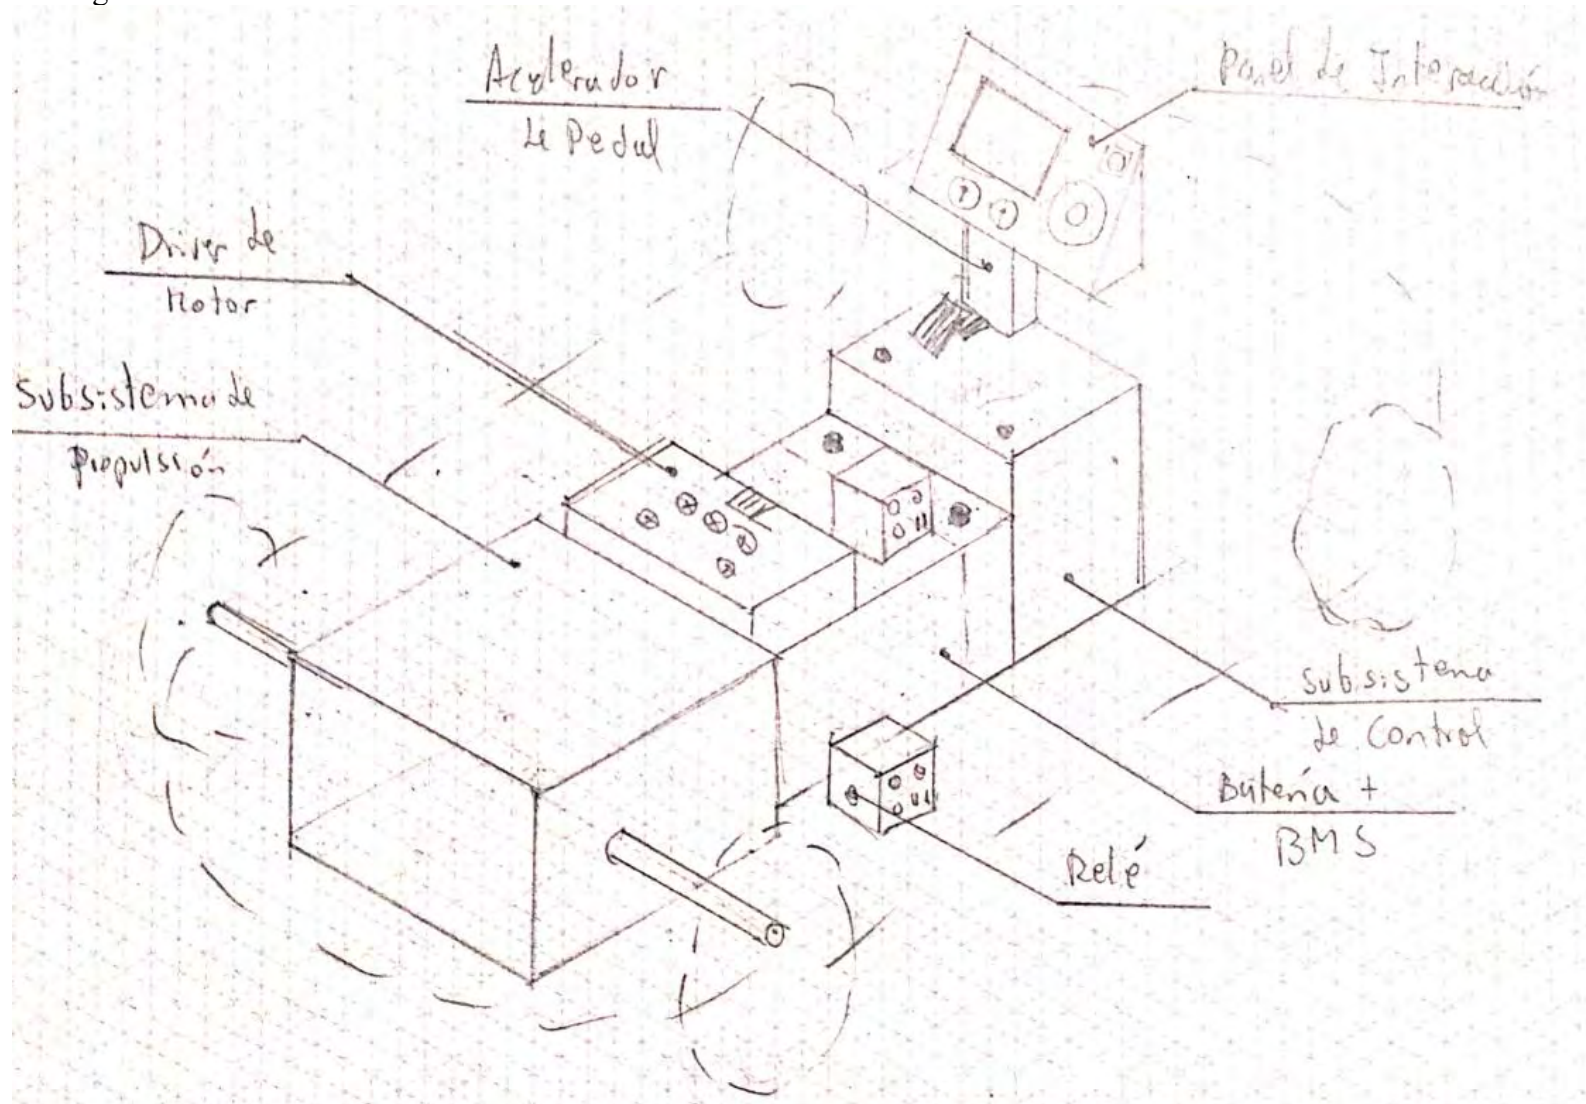 Acelerador
de Pedal
Panel de Interacción
Driver de
Motor
Subsistema de
Propulsión
Subsistema
de Control
Batería +
BMS
Relé